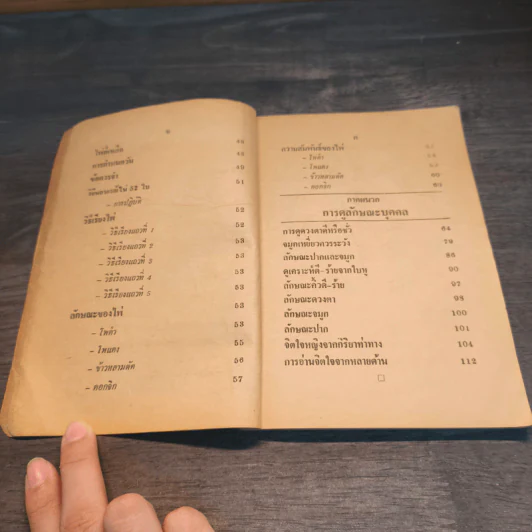 วิธีเรียงไพ่ 52
– วิธีเรียงแถวที่ 1 52
– วิธีเรียงแถวที่ 2 53
– วิธีเรียงแถวที่ 3 53
– วิธีเรียงแถวที่ 4 53
– วิธีเรียงแถวที่ 5 53
ลักษณะของไพ่ 53
– โพดำ 53
– โพแดง 55
– ข้าวหลามตัด 56
– ดอกจิก 57
ความสัมพันธ์ของไพ่
– โพดำ
– โพแดง
– ข้าวหลามตัด
– ดอกจิก
ภาคผนวก
การดูลักษณะบุคคล
การดูดวงตาดีหรือชั่ว 64
จมูกเหี่ยวควรระวัง 79
ลักษณะปากและจมูก 86
ดูเคราะห์ดี-ร้ายจากใบหู 90
ลักษณะคิ้วดี-ร้าย 97
ลักษณะดวงตา 98
ลักษณะจมูก 100
ลักษณะปาก 101
จิตใจหญิงจากกิริยาท่าทาง 104
การอ่านจิตใจจากหลายด้าน 112